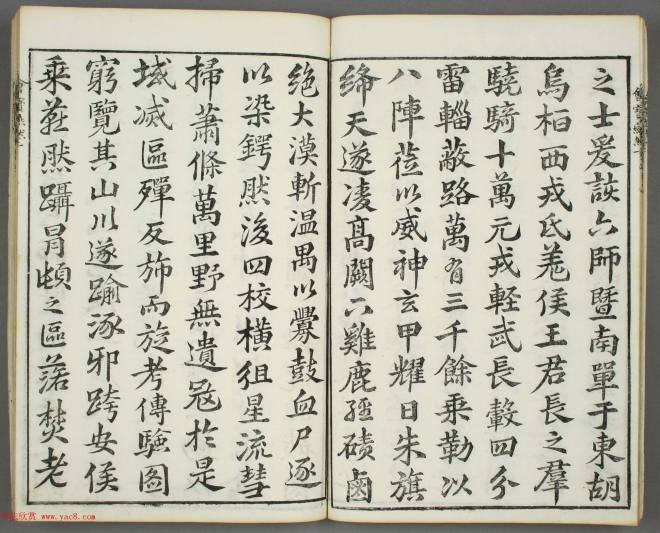 之士爰該六師暨南單于東胡
烏桓西戎氐羌侯王君長之羣
驍騎十萬元戎軽武長轂四分
雷輜蔽路萬有三千餘乘勒以
八陣莅以威神玄甲耀日朱旗
絳天遂凌高闕下雞鹿經磧鹵
絕大漠斬温禺以釁鼓血尸逐
以染鍔然後四校橫徂星流彗
掃蕭條萬里野無遺寇於是
域滅區殫反斾而旋考傳驗圖
窮覽其山川遂踰涿邪跨安侯
乘燕然躡冒頓之區落焚老
欣赏 www.yac8.com